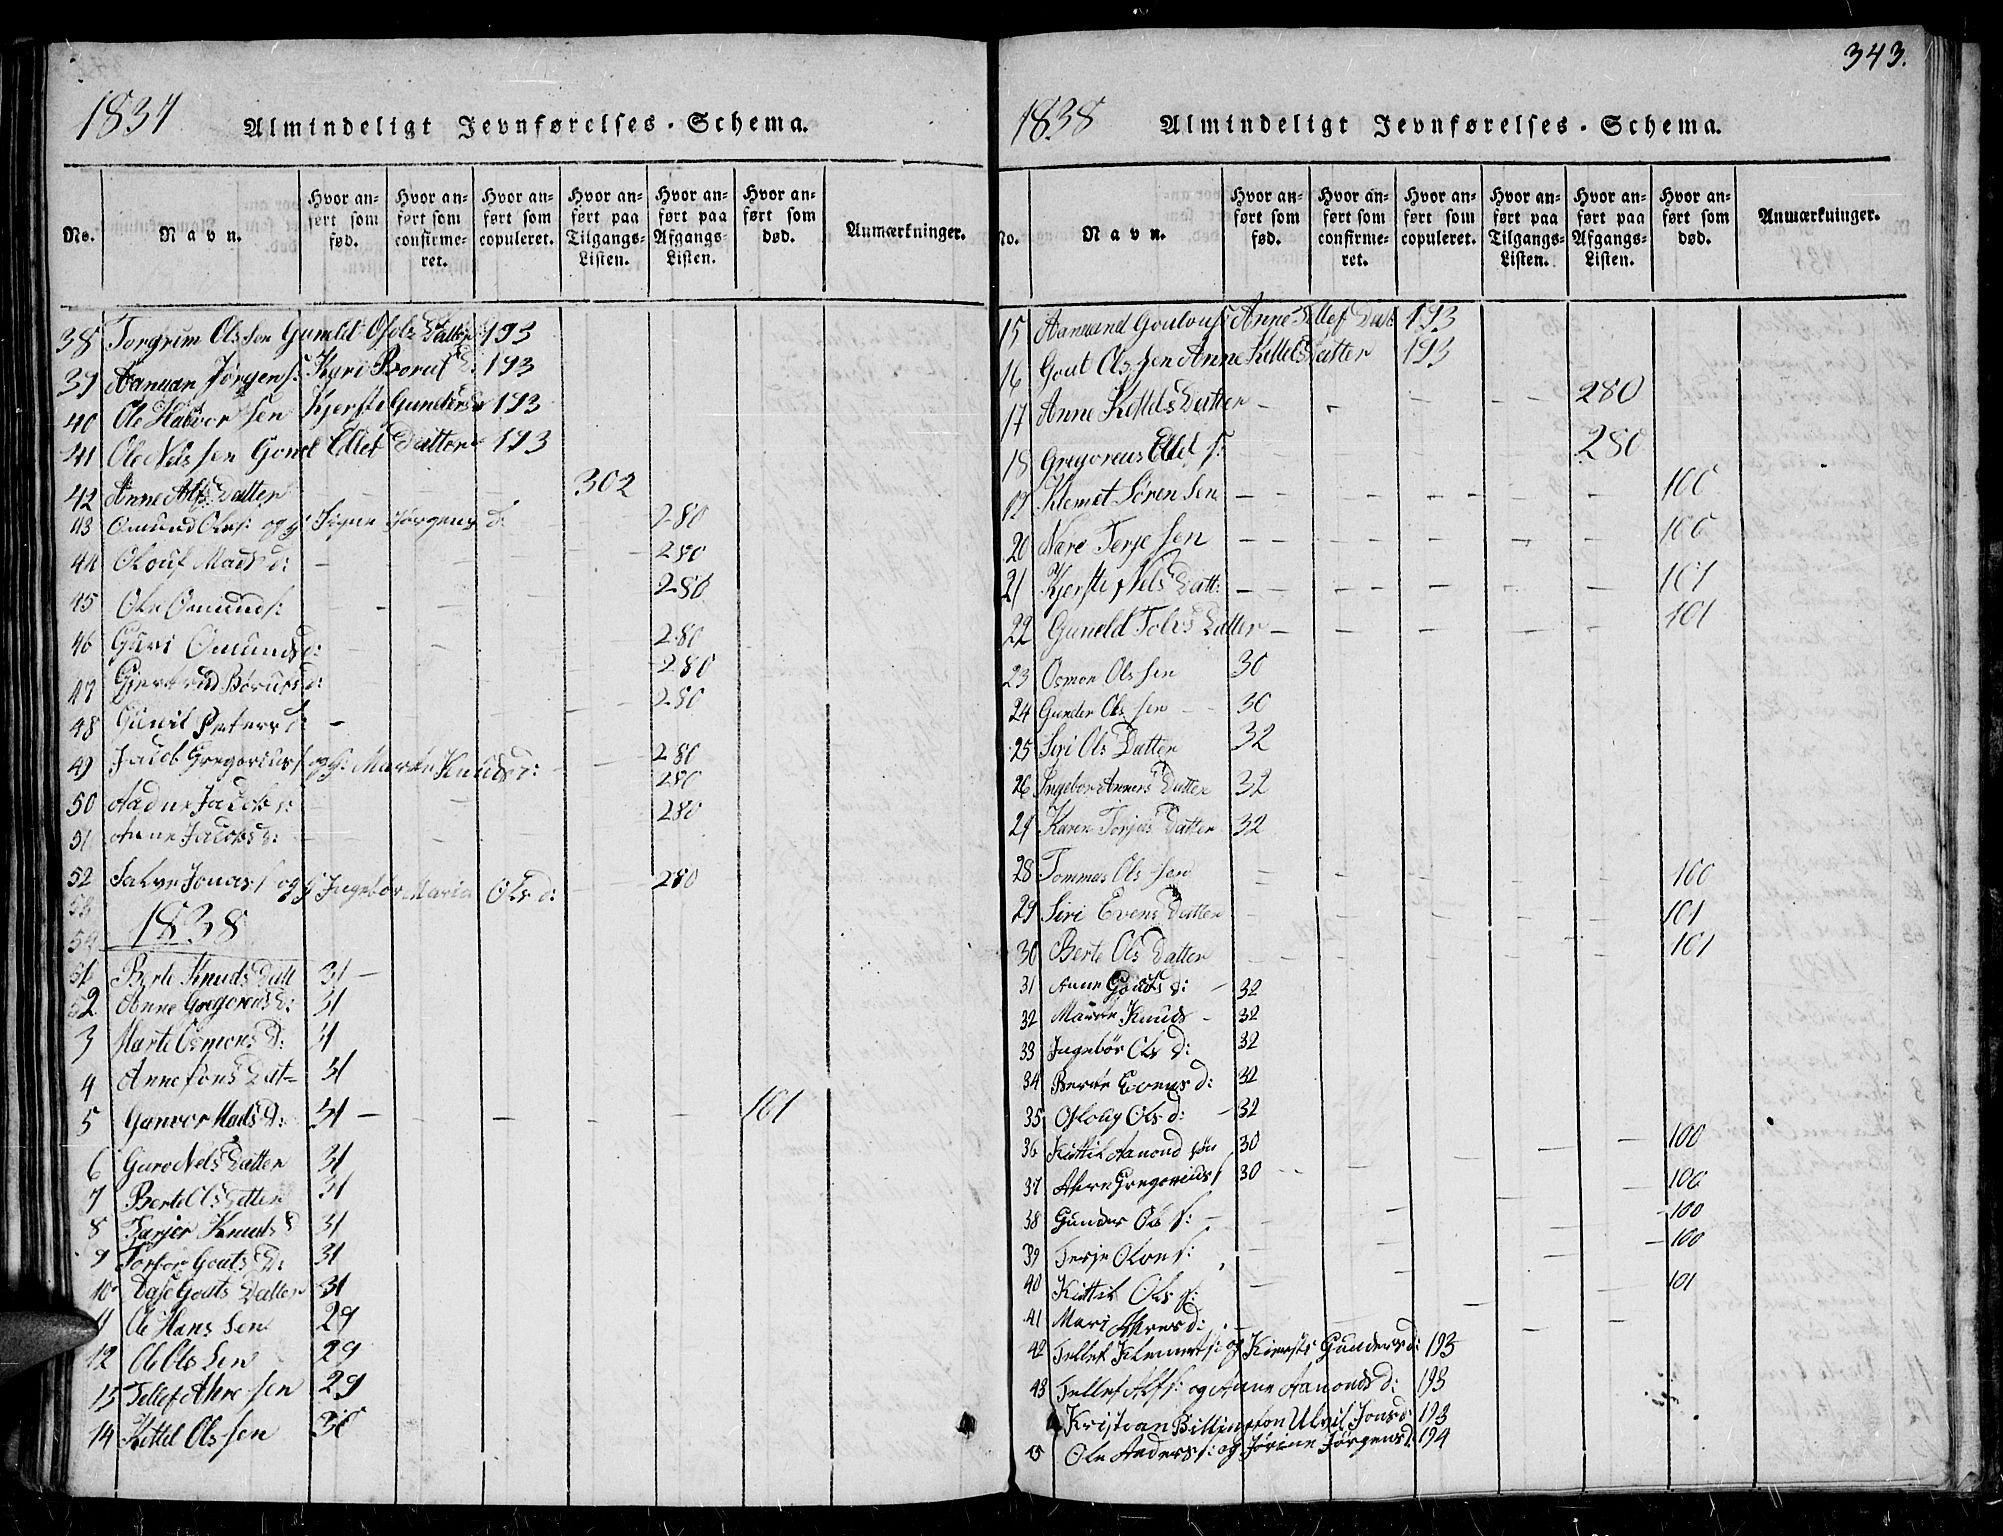 1837 Almindeligt Jevnførelses-Schema.
No. Navn. Hvor anført som fød. Hvor anført som confirmeret. Hvor anført som copuleret. Hvor anført paa Tilgangs-Listen. Hvor anført paa Afgangs-Listen. Hvor anført som død. Anmærkninger.
38 Torgrim Olssen Gunild Osols Datter 193
39 Aanuan Jørgens: Kyri Boruf d: 193
40 Ole Halvorsen Kjerste Gundersd 193
41 Ole Nelssen Gonel Edlef Datter 193
42 Anne Alfs Datter 302
43 Omund Ols: og h: Signe Jørgens d: 280
44 Olouf Mads d: 280
45 Ole Omunds: 280
46 Guri Omunds d: 280
47 Gjertrud Børufs d: 280
48 Gunil Peters d: 280
49 Jacob Gregorius s og h: Marte Knuds d: 280
50 Aadne Jacobs s: 280
51 Anne Jacobs d: 280
52 Salve Jonas s og h Ingebør Maria Ols d: 280
53
54 1838
1 Berte Knuds Datt 31
2 Anne Gregorius d: 31
3 Marte Osmons d: 31
4 Anne Jons Dat- 31
5 Gunvor Mads d: 31 101
6 Guro Nels Datter 31
7 Berte Ols Datter 31
8 Tarjer Knuds d 31
9 Torbor Gouts d: 31
10 Aase Gouts Datter 31
11 Ole Hanssen 29
12 Ole Olssen 29
13 Tellef Ahresen 29
14 Kittel Olssen 30
343.
1838 Almindeligt Jevnførelses-Schema.
No. Navn. Hvor anført som fød. Hvor anført som confirmeret. Hvor anført som copuleret. Hvor anført paa Tilgangs-Listen. Hvor anført paa Afgangs-Listen. Hvor anført som død. Anmærkninger.
15 Aanund Goulous Anne Tellef Datt 193
16 Gout Olssen Anne Kittels Datter 193
17 Anne Kittels Datter 280
18 Gregoreus Ellef s: 280
19 Klemet Sørensen 100
20 Nare Terjesen 100
21 Kjerste Nels Datt: 101
22 Guneld Tolvs Datter 101
23 Osmon Olssen 30
24 Gunder Olssen 30
25 Siri Ols Datter 32
26 Ingebor Anners Datter 32
27 Karen Torjels Datter 32
28 Tommes Olssen 100
29 Siri Evens Datter 101
30 Berte Ols Datter 101
31 Anne Gouts d: 32
32 Marte Knuds 32
33 Ingebør Ols d: 32
34 Berte Evens d: 32
35 Osloug Ols d: 32
36 Kittil Aamond søn 30 100
37 Ahre Gregorius s 30 100
38 Gunder Ols s: 100
39 Terje Olves: 100
40 Kittil Ols s: 101
41 Mari Ahres d:
42 Tellef Klemets: og Kierste Gunders d: 193
43 Tellef Alfs: og Anne Aamonds d: 193
Kristian Billington Ulvil Jons d: 193
Ole Anders s: og Jørine Jørgens d. 194